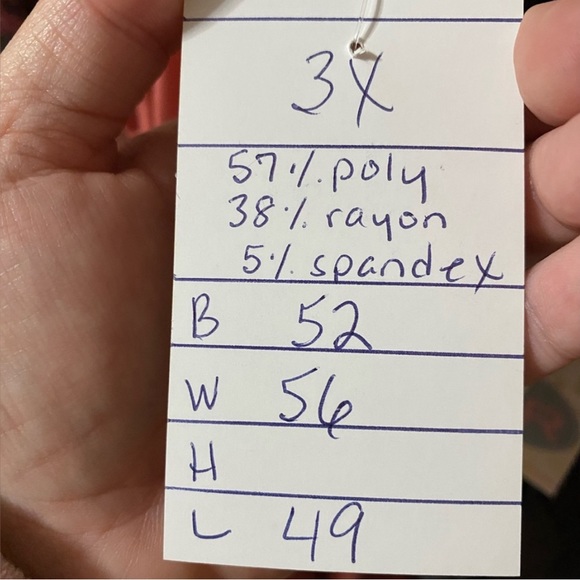 3X
57% poly
38% rayon
5% spandex
B 52
W 56
H
L 49